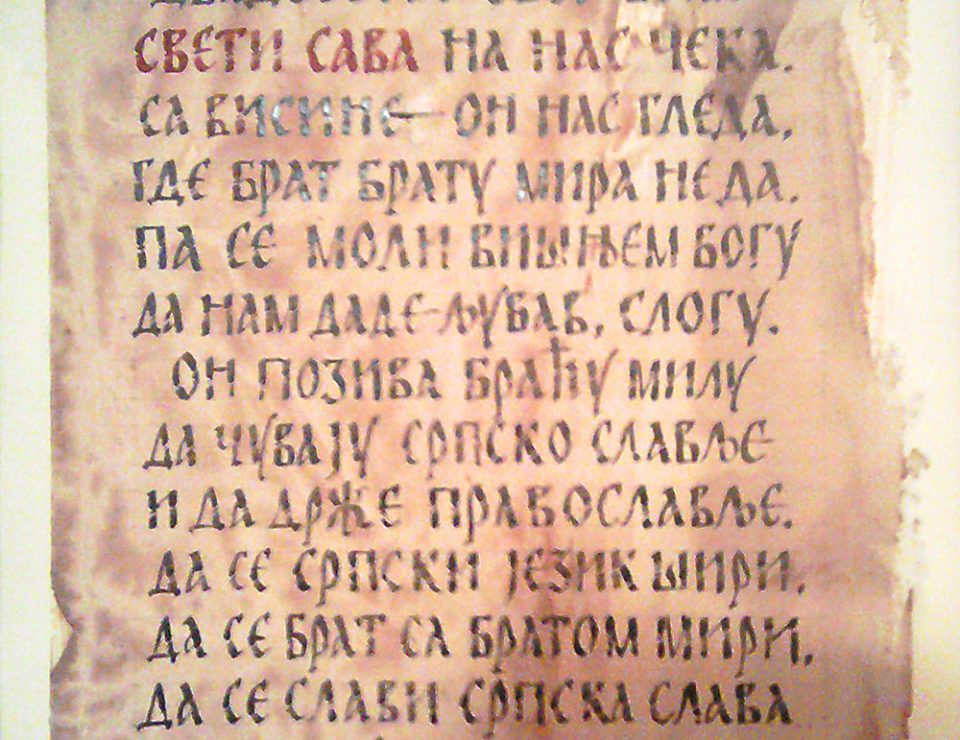 СВЕТИ САВА НА НАС ЧЕКА.
СА ВИСИНЕ — ОН НАС ГЛЕДА,
ГДЕ БРАТ БРАТУ МИРА НЕ ДА.
ПА СЕ МОЛИ ВИШЊЕМ БОГУ
ДА НАМ ДАДЕ - ЉУБАВ, СЛОГУ.
ОН ПОЗИВА БРАЋУ МИЛУ
ДА ЧУВАЈУ СРПСКО СЛАВЉЕ
И ДА ДРЖЕ ПРАВОСЛАВЉЕ.
ДА СЕ СРПСКИ ЈЕЗИК ШИРИ.
ДА СЕ БРАТ СА БРАТОМ МИРИ,
ДА СЕ СЛАВИ СРПСКА СЛАВА